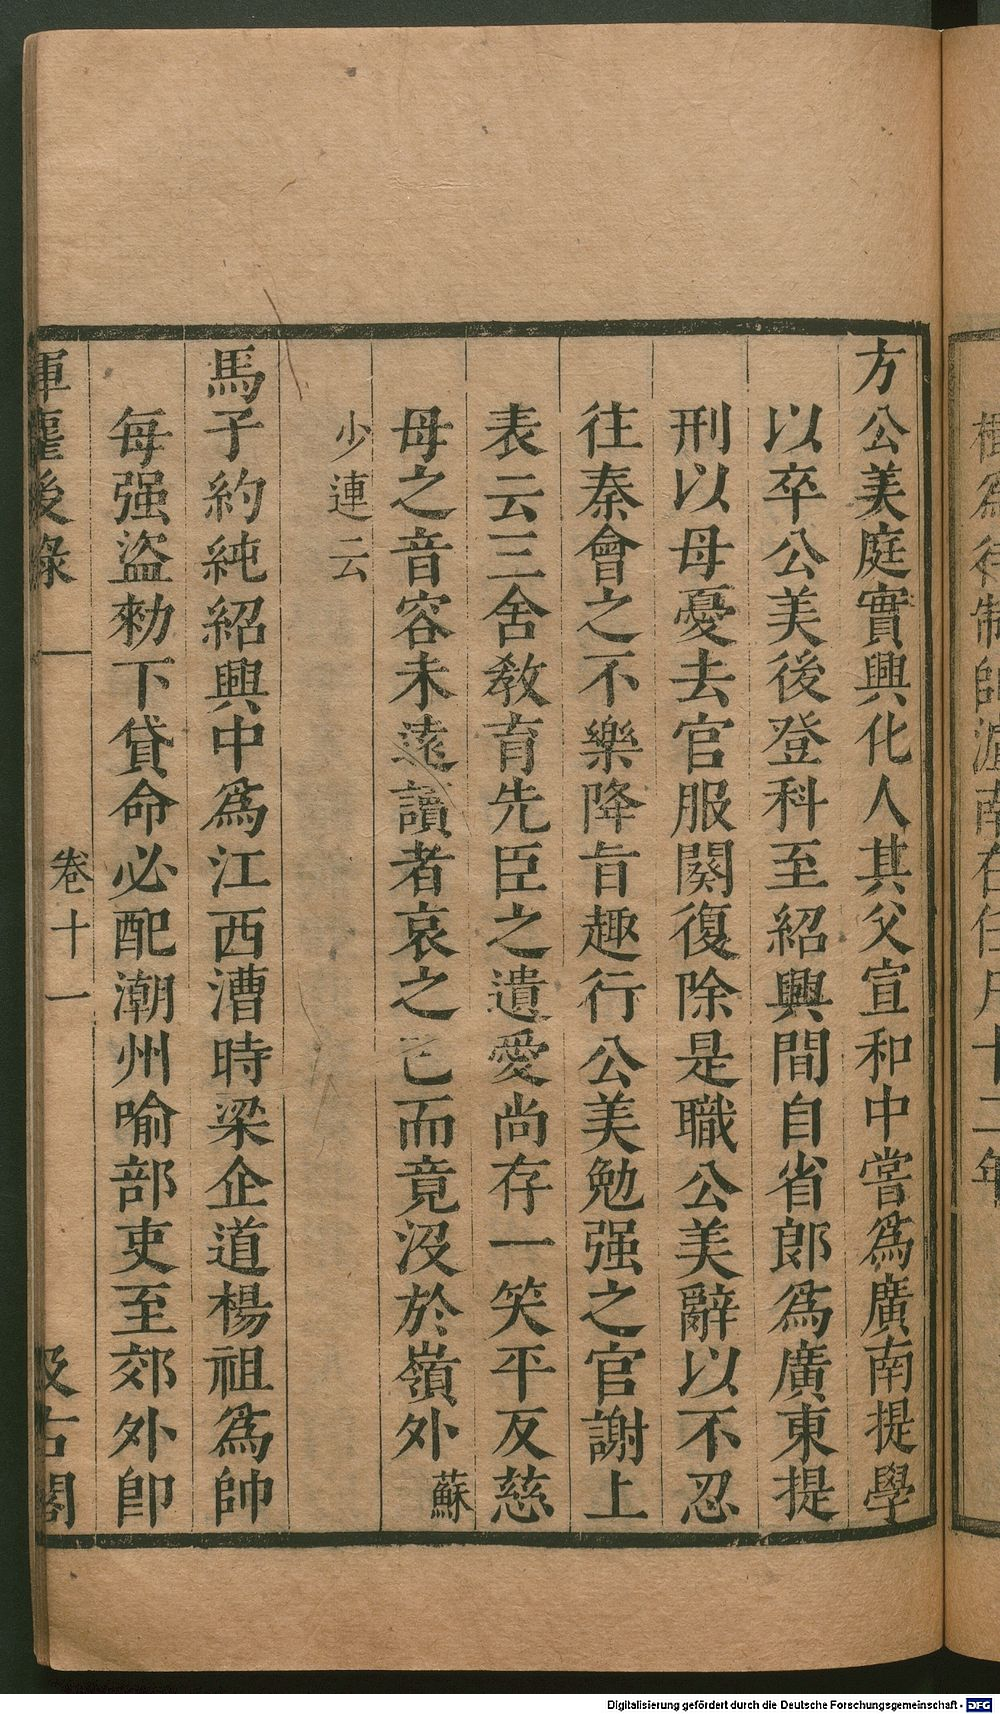 方公美庭實興化人其父宣和中嘗爲廣南提學
以卒公美後登科至紹興間自省郎爲廣東提
刑以母憂去官服闋復除是職公美辭以不忍
往秦會之不樂降旨趣行公美勉强之官謝上
表云三舍教育先臣之遺愛尚存一笑平反慈
母之音容未遠讀者哀之已而竟没於嶺外蘇
少連云
馬子約純紹興中爲江西漕時梁企道楊祖爲帥
每强盜勑下貸命必配潮州喻部吏至郊外卽
揮麈後錄 卷十一 汲古閣
Digitalisierung gefördert durch die Deutsche Forschungsgemeinschaft - DFG